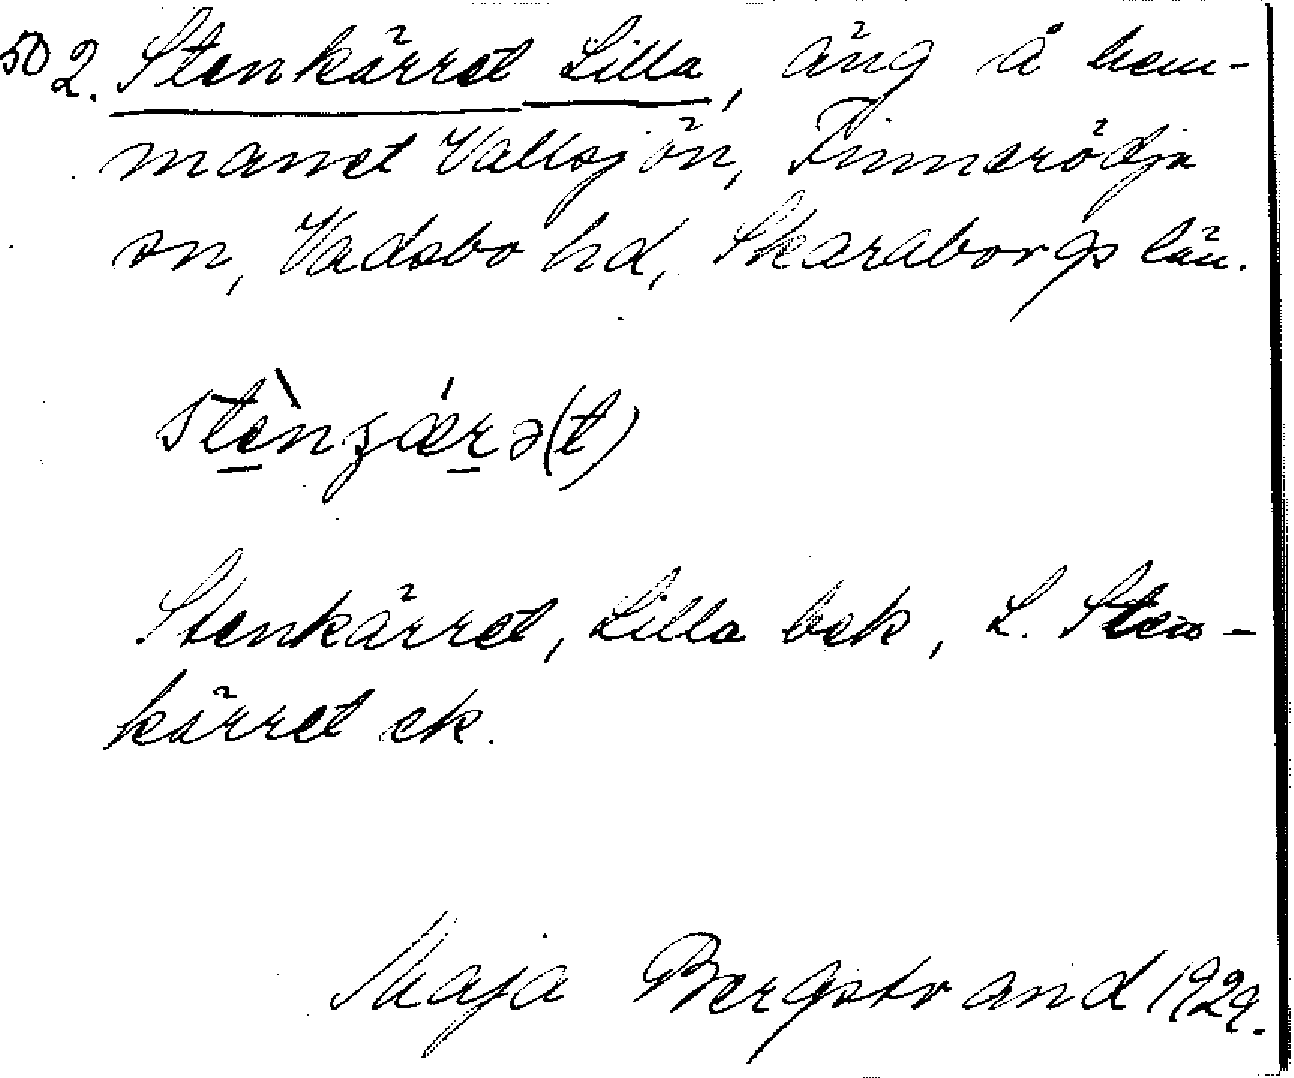 50 2. Stenkärret Lilla, äng å hem-
manet Vallsjön, Finnerödja
sn, Vadsbo hd, Skaraborgs län.
stènʒǽrə(t)
Stenkärret, Lilla bek, L. Sten-
kärret ek.
Maja Bergstrand 1929.